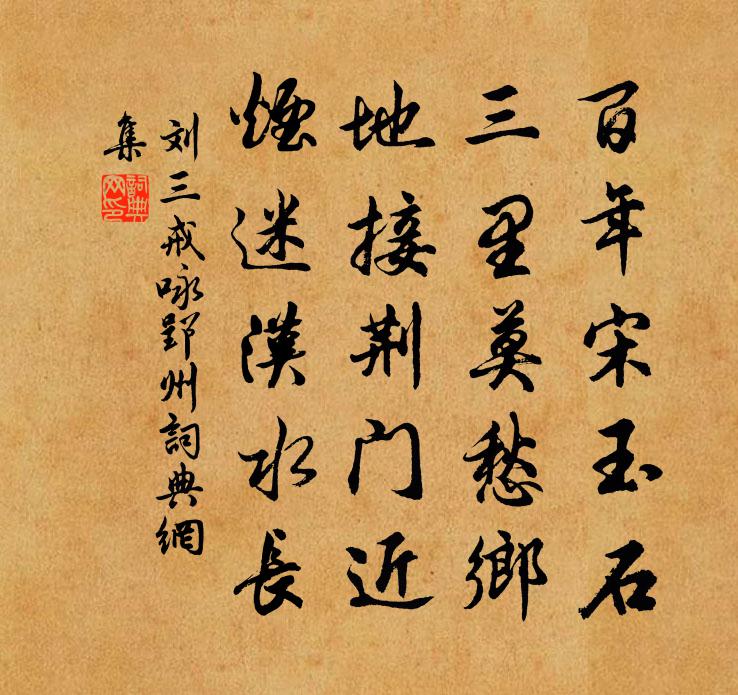 百年宋玉石
三里莫愁鄉
地接荆门近
煙迷漢水長
刘三戒咏郢州詞典網
集
詞典网印